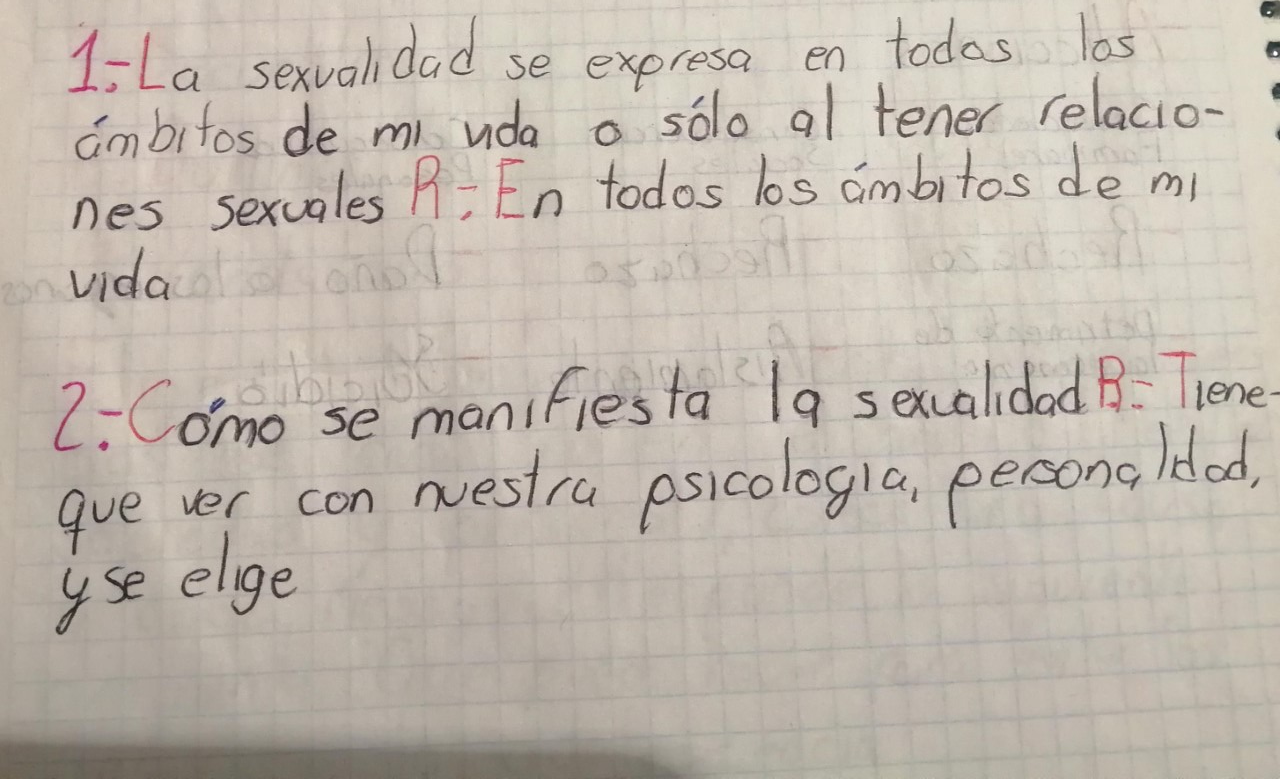 1:-La sexualidad se expresa en todos los
ámbitos de mi vida o sólo al tener relacio-
nes sexuales R:- En todos los ámbitos de mi
vida
2:-Cómo se manifiesta la sexualidad R:- Tiene-
que ver con nuestra psicologia, personalidad,
y se elige